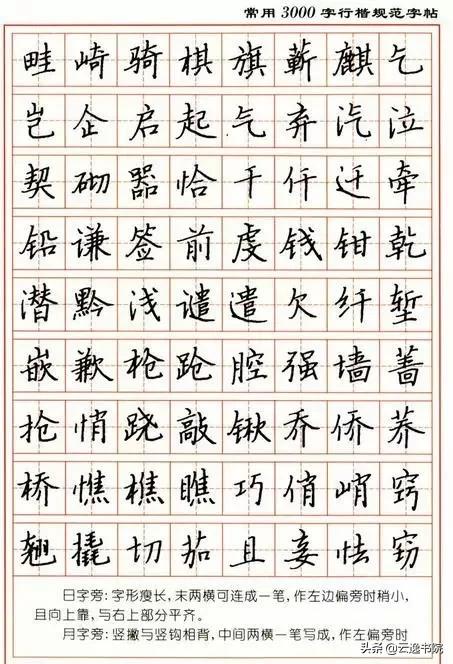 常用3000字行楷规范字帖
畦崎骑棋旗蕲麒乞
岂企启起气弃汽泣
契砌器恰千仟迁牵
铅谦签前虔钱钳乾
潜黔浅谴遣欠纤堑
嵌歉枪跄腔强墙蔷
抢悄跷敲锹乔侨荞
桥憔樵瞧巧俏峭窍
翘撬切茄且妾怯窃
日字旁:字形瘦长,末两横可连成一笔,作左边偏旁时稍小,
且向上靠,与右上部分平齐。
月字旁:竖撇与竖钩相背,中间两横一笔写成,作左偏旁时
头条@云逸书院